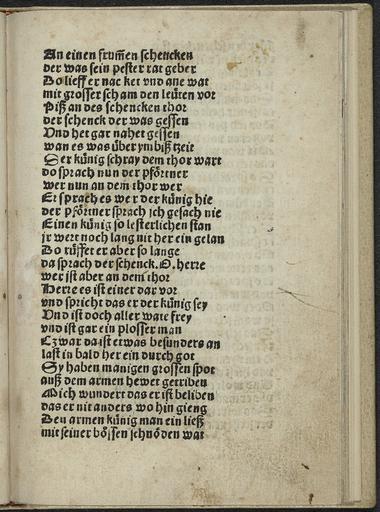 An einen frum̃en schencken
der was sein pester rat geber
Do lieff er nacket vnd ane wat
mit grosser scham den leüten vor
Piß an des schencken thor
der schenck der was gessen
Vnd het gar nahet gessen
wan es was über ymbiß tzeit
Der künig schray dem thor wart
do sprach nun der pförtner
wer nun an dem thor wer
Er sprach es wer der künig hie
der pförtner sprach ich gesach nie
Einen künig so lesterlichen stan
jr wert noch lang nit her ein gelan
Do rüffet er aber so lange
da sprach der schenck. O. herre
wer ist aber an dem thor
Herre es ist einer dar vor
vnd spricht das er der künig sey
Vnd ist doch aller wate frey
vnd ist gar ein plosser man
Czwar da ist etwas besunders an
last in bald her ein durch got
Sy haben manigen grossen spot
auß dem armen hewet getriben
Mich wundert das er ist beliben
das er nit anders wo hin gieng
Den armen künig man ein ließ
mit seiner bössen schnöden wat